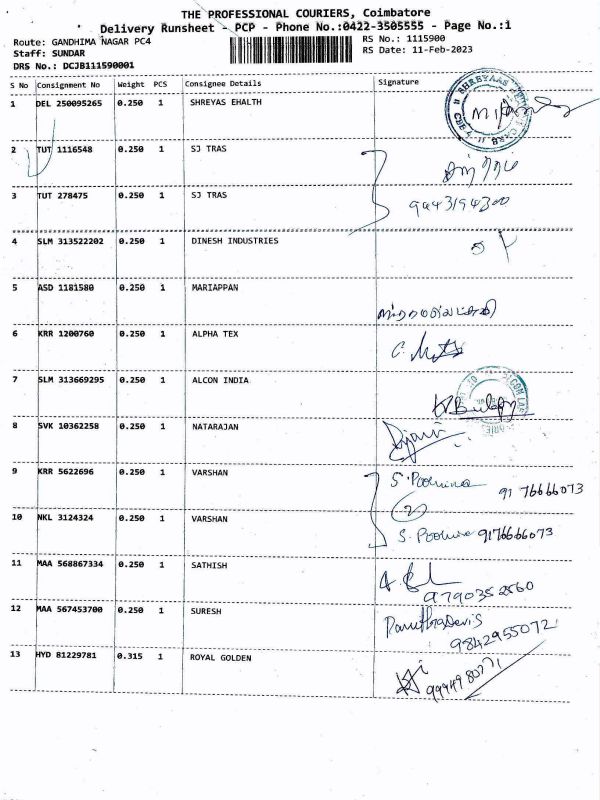 THE PROFESSIONAL COURIERS, Coimbatore
Delivery Runsheet - PCP - Phone No.:0422-3505555 - Page No.:1
Route: GANDHIMA NAGAR PC4
RS No.: 1115900
Staff: SUNDAR
RS Date: 11-Feb-2023
DRS No.: DCJB111590001
S No Consignment No Weight PCS Consignee Details Signature
1 DEL 250095265 0.250 1 SHREYAS EHALTH
2 TUT 1116548 0.250 1 SJ TRAS
3 TUT 278475 0.250 1 SJ TRAS 9443194300
4 SLM 313522202 0.250 1 DINESH INDUSTRIES
5 ASD 1181580 0.250 1 MARIAPPAN
6 KRR 1200760 0.250 1 ALPHA TEX
7 SLM 313669295 0.250 1 ALCON INDIA
8 SVK 10362258 0.250 1 NATARAJAN
9 KRR 5622696 0.250 1 VARSHAN S. Poornima 91 76666073
10 NKL 3124324 0.250 1 VARSHAN 2 S. Poornima 9176666073
11 MAA 568867334 0.250 1 SATHISH 9790352560
12 MAA 567453700 0.250 1 SURESH 9842955072
13 HYD 81229781 0.315 1 ROYAL GOLDEN